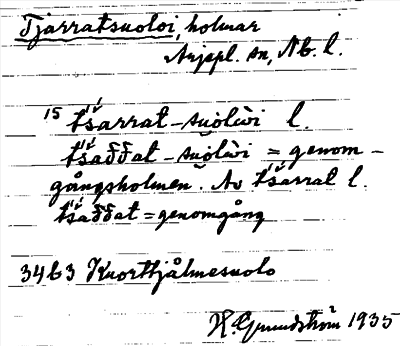 Tjarratsuoloi, holmar
Arjepl. sn, Nb. l.
15 tśarrat-suoloi l.
tśaððat-suoloi = genom-
gångsholmen. Av tśarrat l.
tśaððat = genomgång
3463 Kuorttjålmesuolo
H. Grundström 1935